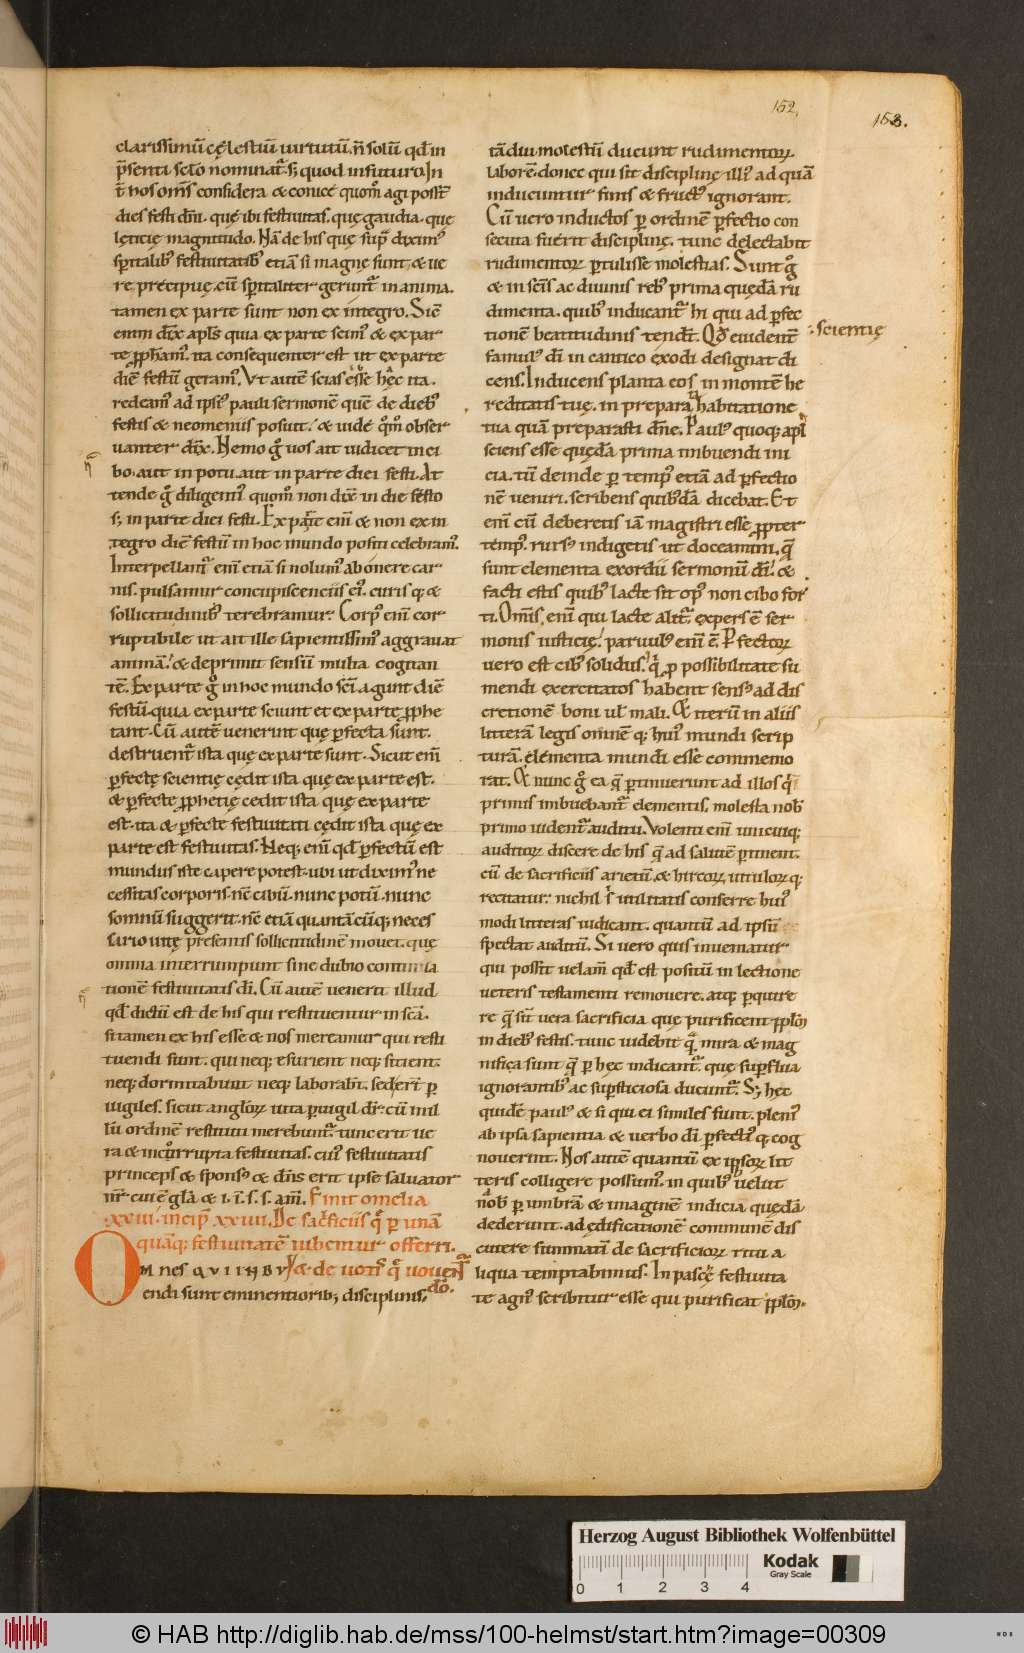 152.
153.
clarissimū cęlestiū uirtutū. ñ solū qđ in
p̄senti sc̄lo nominat᷑. s; quod in futuro. In
t̄ hos om̄s considera & conice quom̊ agi poss̄t
dies festi dn̄i. quę ibi festiuitas. quę gaudia. quę
lęticię magnitudo. Nā de his quę sup̄ diximꝰ
sp̄italibꝰ festiuitatibꝰ etiā si magnę sunt. & ue
re precipuę. cū sp̄italiter gerunt᷑ in anima.
tamen ex parte sunt non ex integro. Sic̄
enim dix̄ apl̄s quia ex parte scimꝰ & ex par
te ꝓph̄amꝰ. ita consequenter est ut ex parte
diē festū geramꝰ. Vt autē scias ēsse hęc ita.
redeamꝰ ad ipsiꝰ pauli sermonē quē de diebꝰ
festis & neomeniis posuit. & uide qm̊ obser
uanter dix̄. Nemo g̊ uos ait iudicet in ci
bo. aut in potu. aut in parte diei festi. At
tende g̊ diligentiꝰ quom̊ non dix̄ in die festo
s; in parte diei festi. Ex parte eni᷑ & non ex in
tegro diē festū in hoc mundo positi celebramꝰ.
Interpellamur enī etiā si nolumꝰ ab onere car
nis. pulsamur concupiscenciis eiꝰ. curis q; &
sollicitudinibꝰ terebramur. Corpꝰ enī cor
ruptibile ut ait ille sapientissimꝰ aggrauat
animā. & deprimit sensū multa cogitan
tē. Ex parte g̊ in hoc mundo sc̄i agunt diē
festū. quia ex parte sciunt et ex parte ꝓphe
tant. Cū autē uenerint quę ꝑfecta sunt.
destruent᷑ ista quę ex parte sunt. Sicut enī
ꝑfectę scientię cędit ista quę ex parte est.
& ꝑfecte ꝓphetię cedit ista quę ex parte
est. ita & ꝑfecte festiuitati cędit ista quę ex
parte est festiuitas. Neq; enī qđ ꝑfectū est
mundus iste capere potest. ubi ut diximꝰ ne
cessitas corporis. nc̄ cibū. nunc potū. nunc
somnū suggerit. nc̄ etiā quantācūq; neces
sario uitę presentis sollicitudinē mouet. quę
omnia interrumpunt sine dubio continua
tionē festiuitatis dī. Cū autē uenerit illud
qđ dictū est de his qui restituentur in scā.
si tamen ex his esse & nos mereamur qui resti
tuendi sunt. qui neq; esurient neq; sitient.
neq; dormitabunt neq; laborabt̄. sed er̄t ꝑ
uigiles. sicut anglorꝫ uita ꝑuigil dr̄. cū in il
lū ordinē restitui merebunt᷑. tunc erit ue
ra & incorrupta festiuitas. cuiꝰ festiuitatis
princeps & sponsꝰ & dn̄s erit ipse saluator
nr̄ cui ē gl̄a & i. ī. s. s. am̄. Finit omelia
xxiii. incip̄ xxiiii. De sac̄ficiis q̄ ꝑ unā
quāq; festiuitatē iubemur offerri.
OMNES QVI IN HBVS & de uotis q̄ uouent᷑ dō.
endi sunt eminentiorib; disciplinis,
tādiu molestū ducunt rudimentorꝫ
laborē. donec qui sit disciplinę illiꝰ ad quā
inducuntur finis & fructꝰ ignorant.
Cū uero inductos ꝑ ordinē ꝑfectio con
secuta fuerit disciplinę. tunc delectabit
rudimentorꝫ ꝑtulisse molestias. Sunt g̊
& in scīs ac diuinis rebꝰ prima quędā ru
dimenta. quibꝰ inducant᷑ hi qui ad ꝑfec
tionē beatitudinis tendt̄. Qđ euident̄
famulꝰ dī in cantico exodi designat di
cens. Inducens planta eos in montē he
reditatis tuę. in preparata habitatione
tua quā preparasti dn̄e. Paulꝰ quoq; apl̄
sciens esse quędā prima imbuendi ini
cia. tū deinde ꝑ tempꝰ etiā ad ꝑfectio
nē ueniri. scribens quibꝰdā dicebat. Et
enī cū deberetis iā magistri esse ꝓpter
tempꝰ. rursꝰ indigetis ut doceamini. q̄
sunt elementa exordii sermonū dī. &
facti estis quibꝰ lacte sit opꝰ non cibo for
ti. Om̄is. enī qui lacte alit᷑. expers ē ser
monis iusticię. paruulꝰ enī ē. Ꝑfectorꝫ
uero est cibꝰ solidus. q̄ ꝓ possibilitate su
mendi exercitatos habent sensꝰ ad dis
cretionē boni ul̄ mali. & iterū in aliis
litterā legis omnē q; huiꝰ mundi scrip
turā. elementa mundi esse commemo
rat. & nunc g̊ ea q̄ ꝑtinuerunt ad illos q̄
primis imbuebant᷑ elementis. molesta nobꝰ
primo uident᷑ auditu. Volenti enī unicuiq;
auditorꝫ discere de his q̄ ad salutē ꝑtinent.
cū de sacrificiis arietū. & hircorꝫ, uitulorꝫ q;
recitatur. nichil s̄ utilitatis conferre huiꝰ
modi litteras iudicant. quantū ad ipsū
spectat auditū. Si uero quis inueniatur
qui possit uelam̄ qđ est positū in lectione
ueteris testamenti remouere. atq; ꝑquire
re q̄ sīt uera sacrificia que purificent ꝓpl̄m
in diebꝰ festis. tunc uidebit q̄ mira & mag
nifica sunt q̄ ꝑ hęc indicant᷑. quę suꝑflua
ignorantibꝰ ac suꝑsticiosa ducunt᷑. S; hęc
quidē paulꝰ & si qui ei similes sunt. pleniꝰ
ab ipsa sapientia & uerbo dī ꝑfectiꝰ q; cog
nouerint. Nos autē quantū ex ipsorꝫ lit
teris colligere possumꝰ. in quibꝰ uelut
nob̄ ꝑ umbrā & imaginē indicia quędā
dederunt. ad ędificationē communē dis
cutere summatī de sacrificiorꝫ ritu a
liqua temptabimus. In paschę festiuita
te agnꝰ scribitur esse qui purificat ꝓpl̄m.
scientię
Herzog August Bibliothek Wolfenbüttel
Kodak
Gray Scale
0 1 2 3 4
© HAB http://diglib.hab.de/mss/100-helmst/start.htm?image=00309
HAB